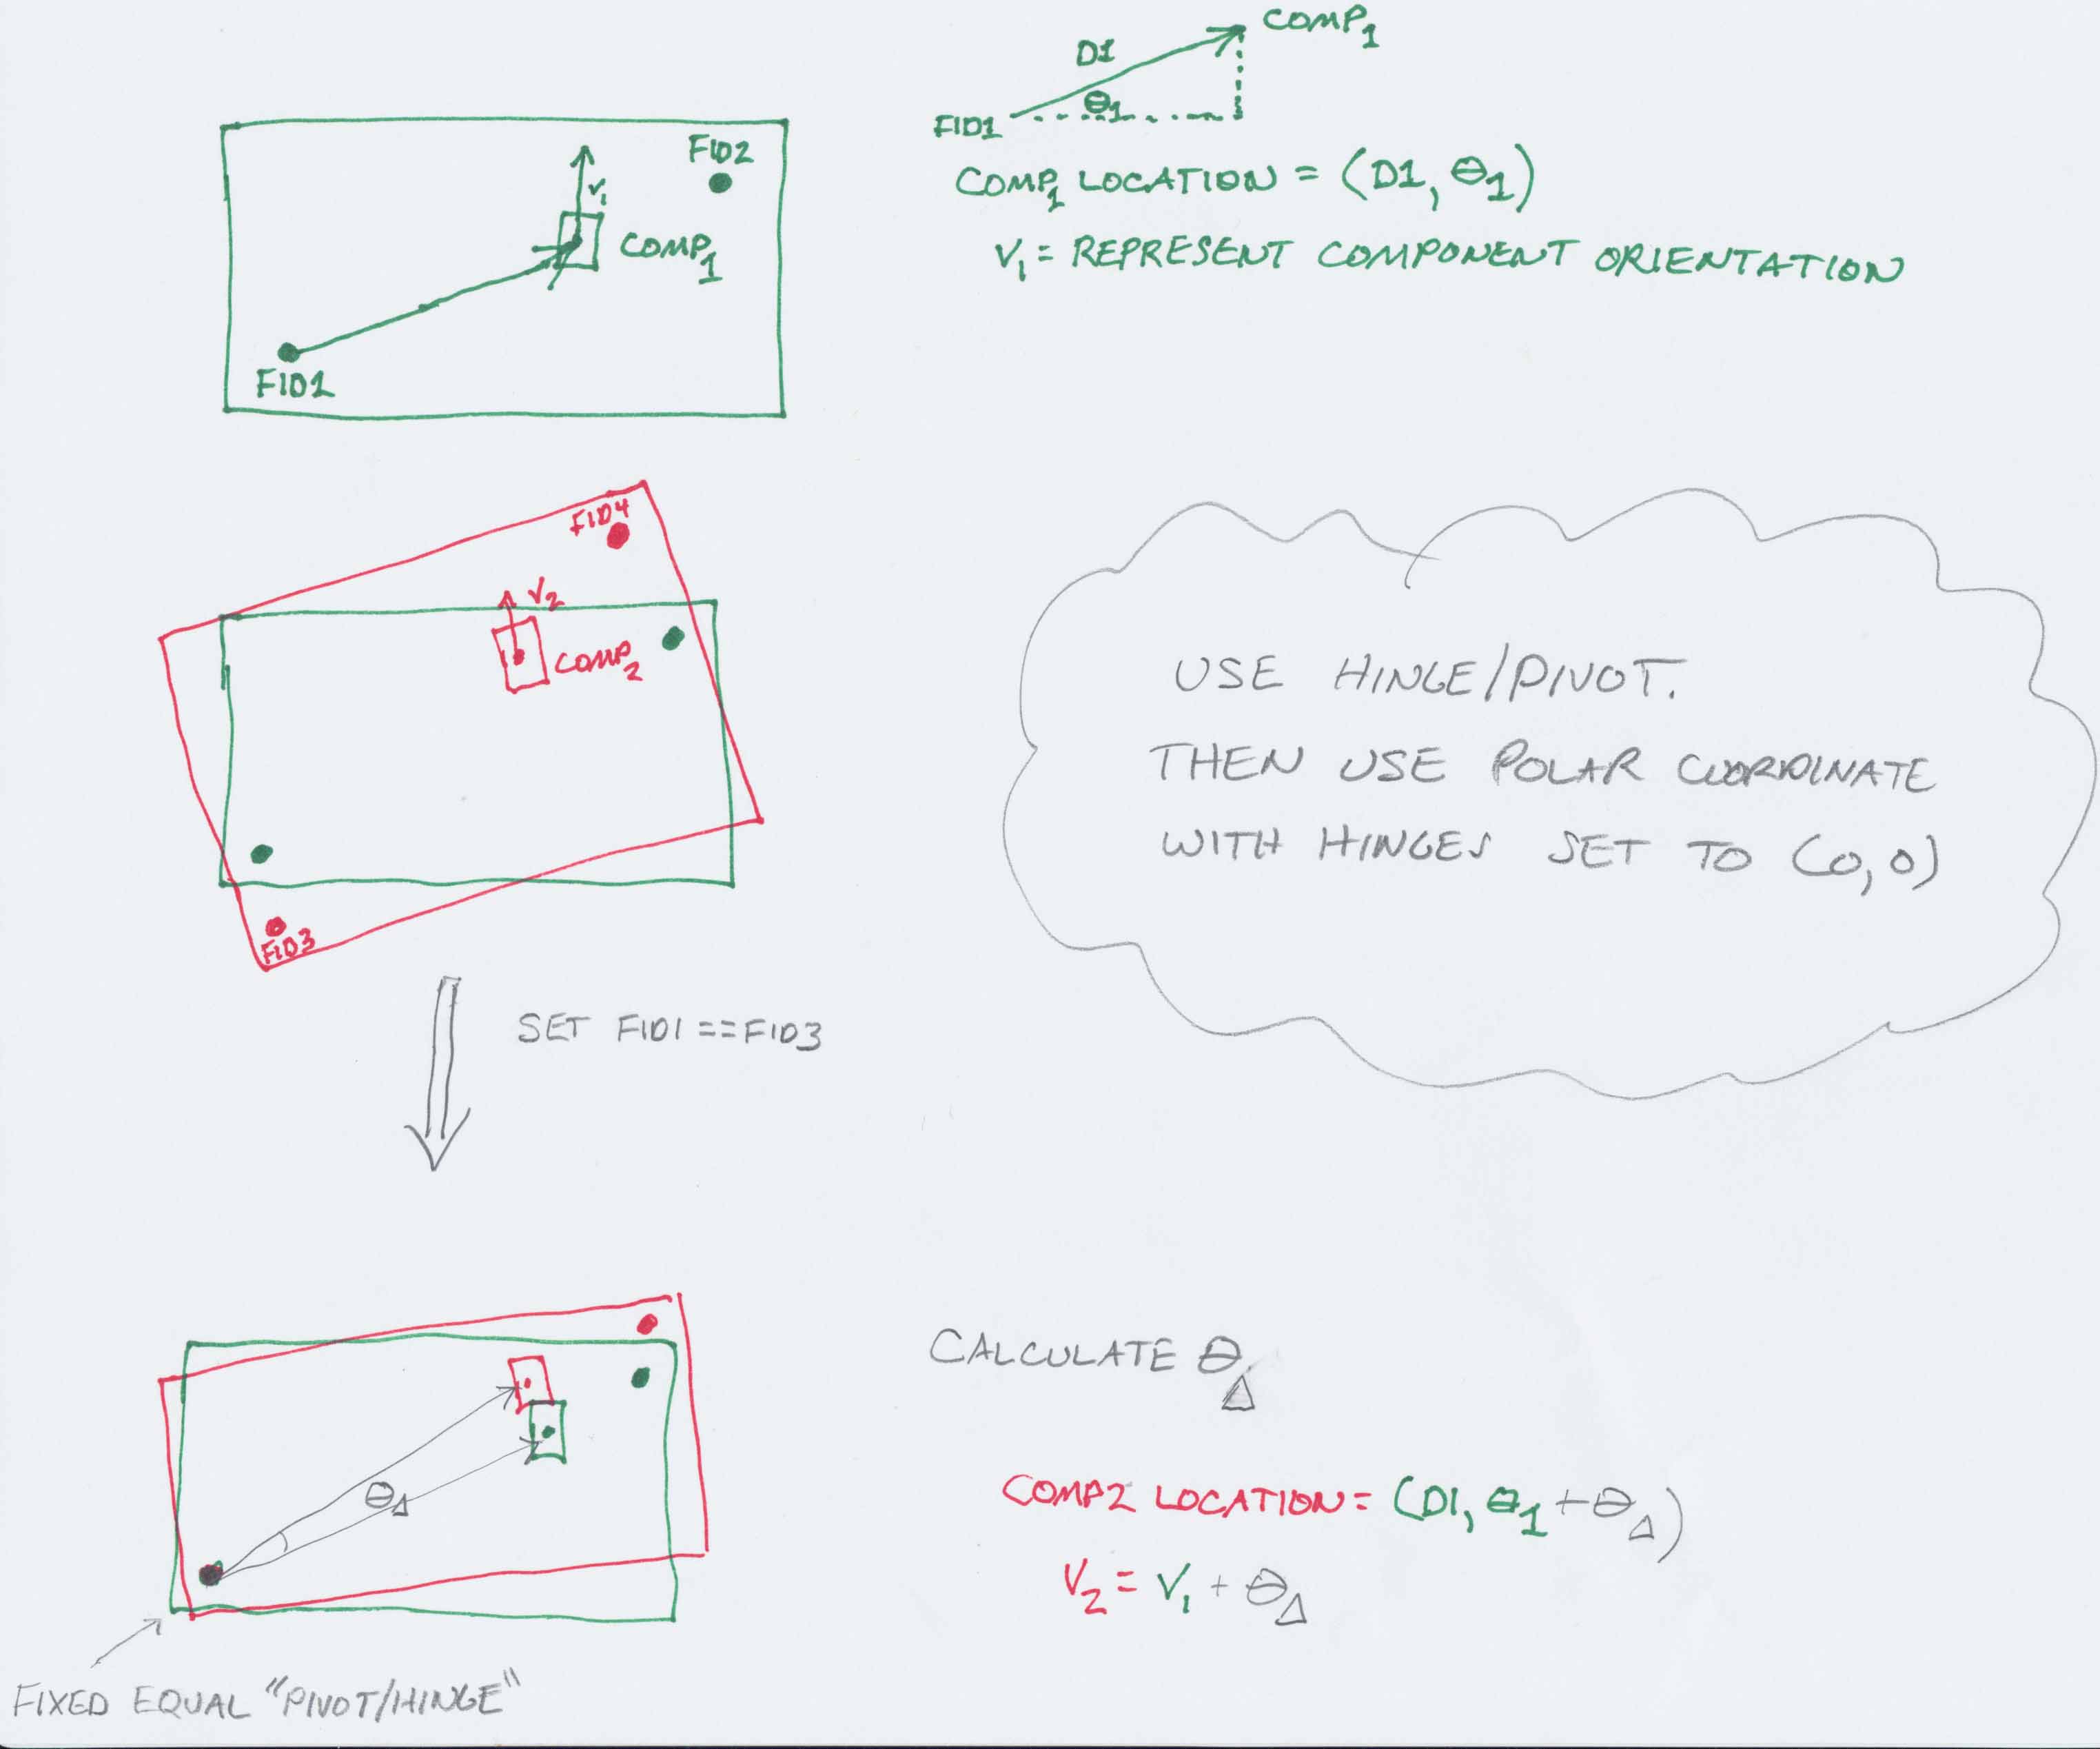 COMP1
D1
θ1
FID1
COMP1 LOCATION = (D1, θ1)
V1 = REPRESENT COMPONENT ORIENTATION
FID2
V1
COMP1
FID1
FID4
V2
COMP2
FID3
USE HINGE/PIVOT.
THEN USE POLAR COORDINATE
WITH HINGES SET TO (0,0)
SET FID1 == FID3
CALCULATE θΔ
θΔ
COMP2 LOCATION = (D1, θ1 + θΔ)
V2 = V1 + θΔ
FIXED EQUAL "PIVOT/HINGE"